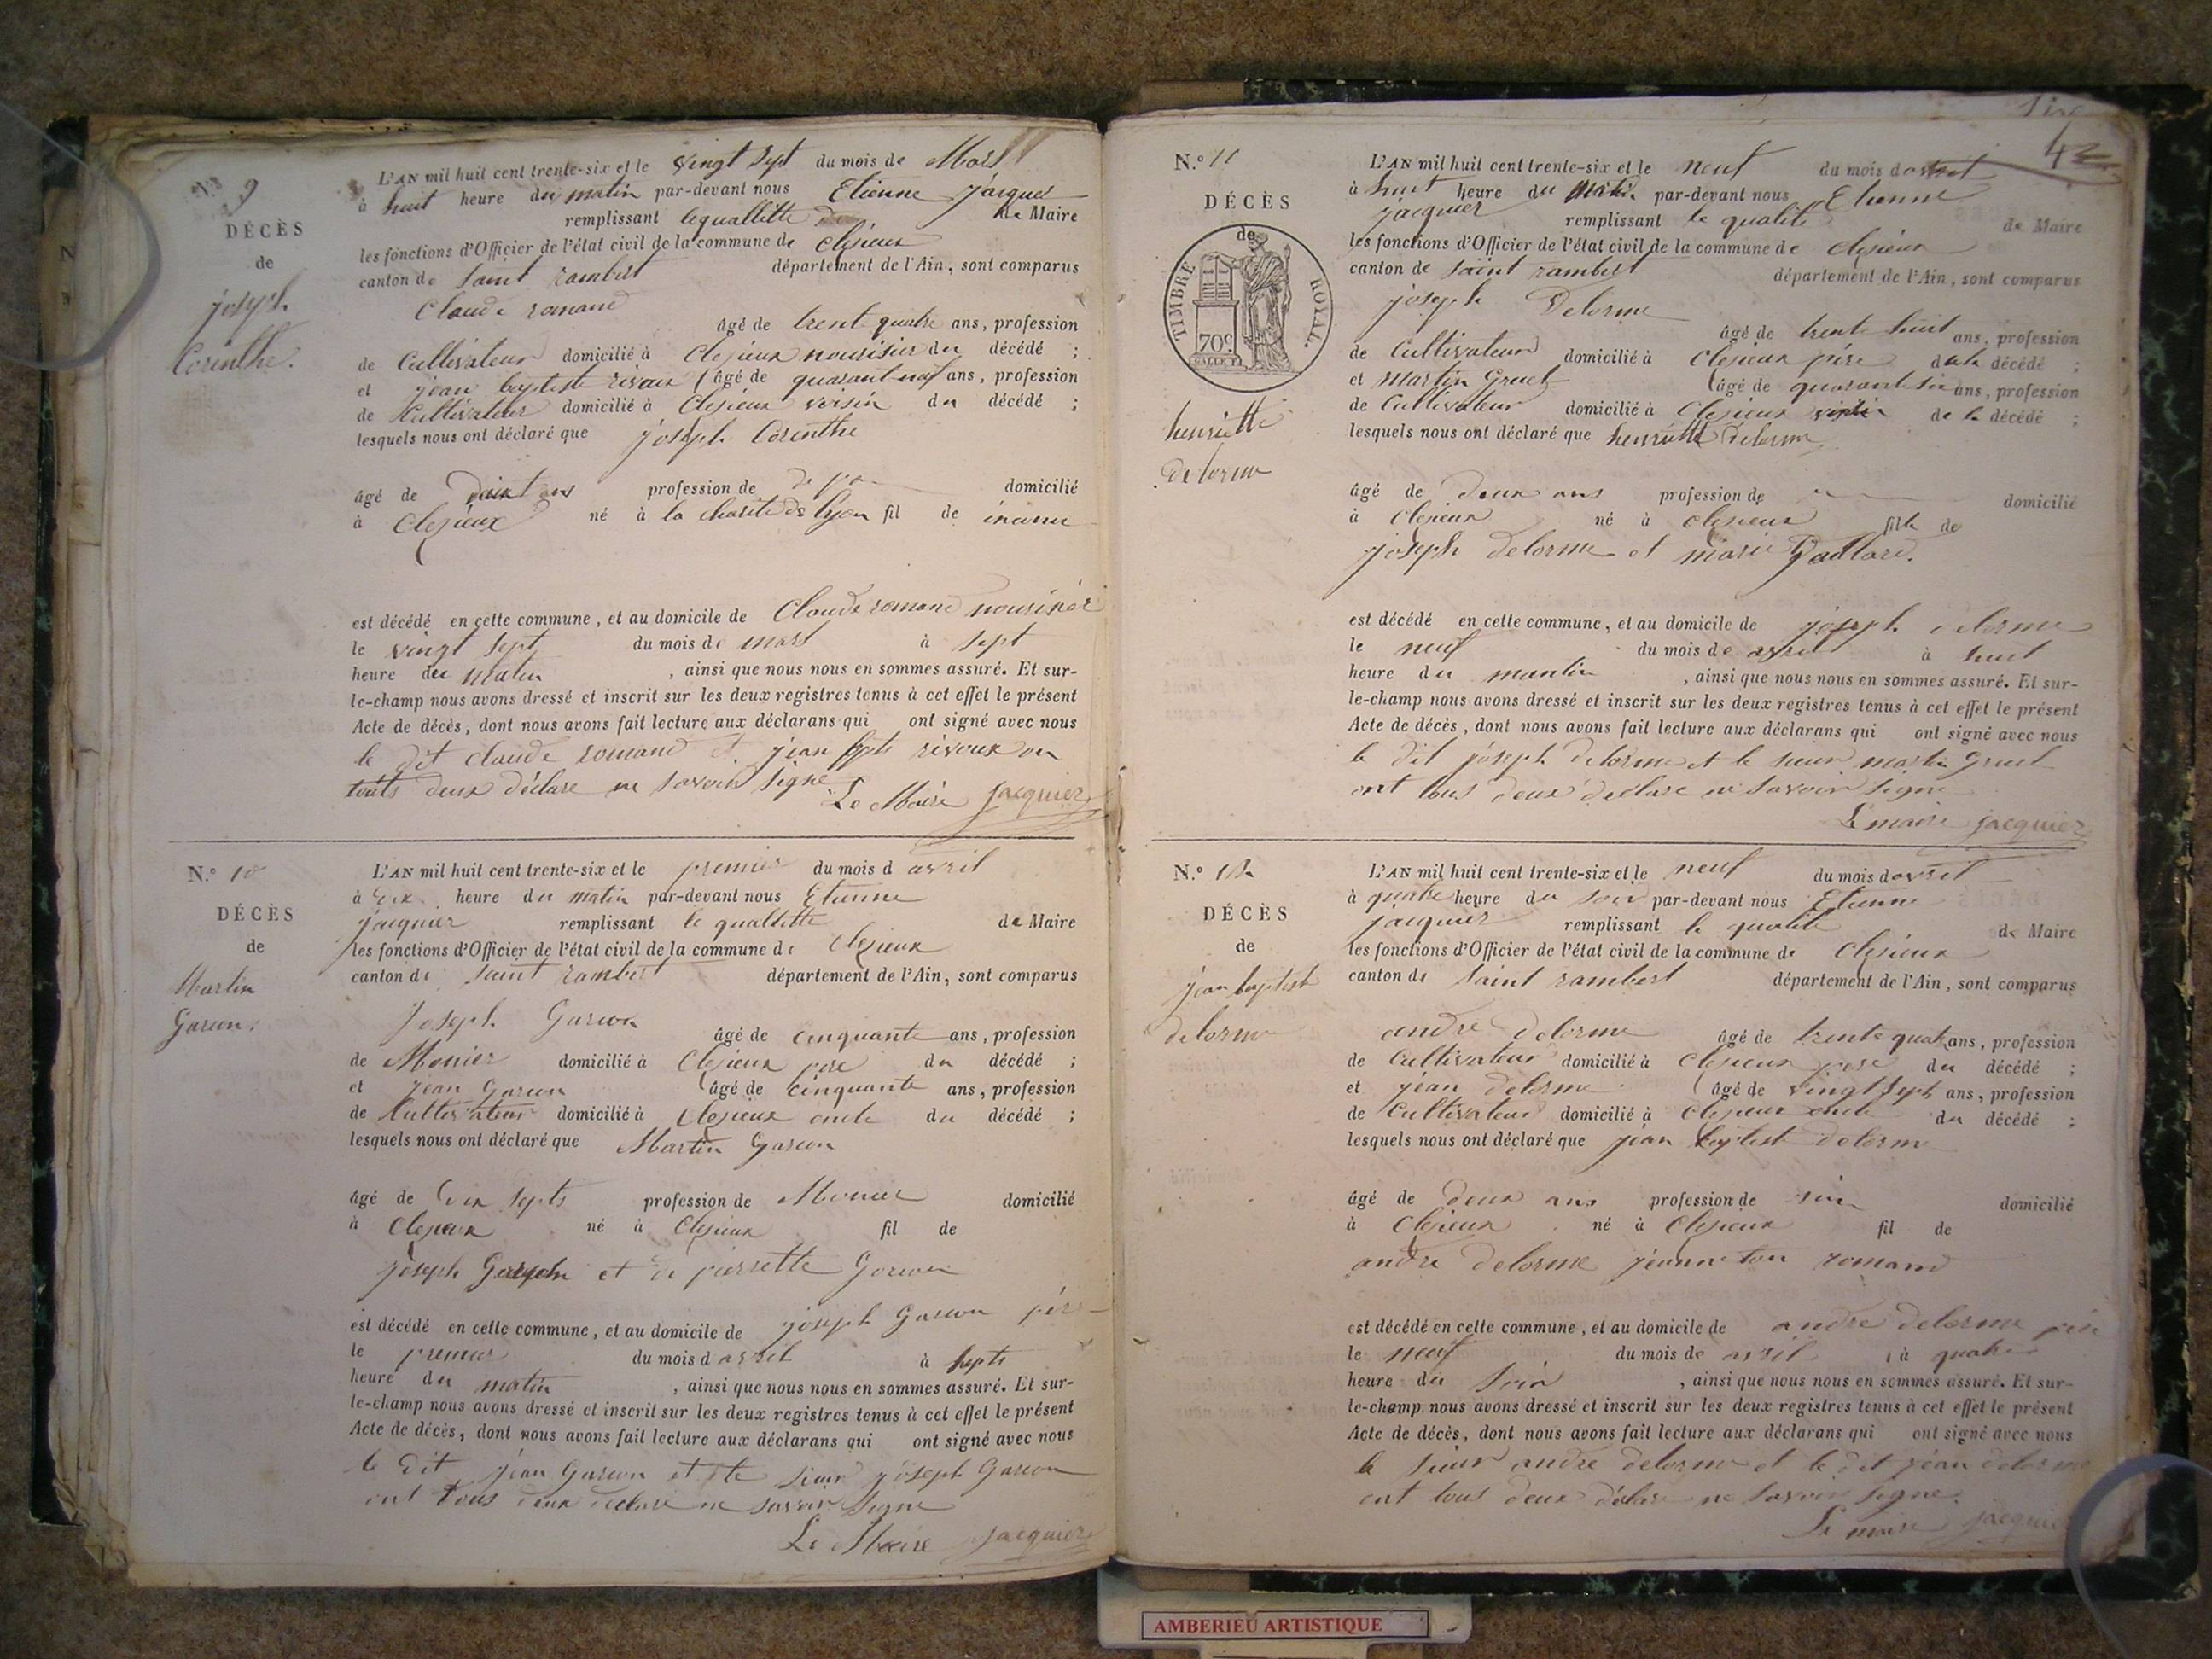 N.º 9
DÉCÈS
de
joseph
Corinthe.
L'AN mil huit cent trente-six et le vingt sept du mois de Mars
à huit heure du matin par-devant nous Etienne jacquer
remplissant le quallitte de Maire
les fonctions d'Officier de l'état civil de la commune de Clesieux
canton de saint rambert département de l'Ain, sont comparus
Claude romand
âgé de trent quatre ans, profession
de Cultivateur domicilié à Clesieux nourisier du décédé ;
et jean baptiste rivoux âgé de quarant neuf ans, profession
de Cultivateur domicilié à Clesieux voisin du décédé ;
lesquels nous ont déclaré que joseph Corinthe
âgé de ans profession de domicilié
à Clesieux né à la charite de lyon fil de inconu
est décédé en cette commune, et au domicile de Claude romand nourisier
le vingt sept du mois de mars à sept
heure du matin , ainsi que nous nous en sommes assuré. Et sur-
le-champ nous avons dressé et inscrit sur les deux registres tenus à cet effet le présent
Acte de décès, dont nous avons fait lecture aux déclarans qui ont signé avec nous
le dit claude romand et jean bpte rivoux on
touts deux déclare ne savoir signe
Le Maire jacquier
N.º 10
DÉCÈS
de
Martin
Garcon.
L'AN mil huit cent trente-six et le premier du mois d avril
à dix heure du matin par-devant nous Etienne
jacquier remplissant le quallitte de Maire
les fonctions d'Officier de l'état civil de la commune de Clesieux
canton de saint rambert département de l'Ain, sont comparus
Joseph Garcon
âgé de cinquante ans, profession
de Monier domicilié à Clesieux pere du décédé ;
et jean Garcon âgé de cinquante ans, profession
de Cultivateur domicilié à Clesieux oncle du décédé ;
lesquels nous ont déclaré que Martin Garcon
âgé de dix septs profession de Monier domicilié
à Clesieux né à Clesieux fil de
joseph et de pierrette Garcon
est décédé en cette commune, et au domicile de joseph Garcon père
le premier du mois d avril à septs
heure du matin , ainsi que nous nous en sommes assuré. Et sur-
le-champ nous avons dressé et inscrit sur les deux registres tenus à cet effet le présent
Acte de décès, dont nous avons fait lecture aux déclarans qui ont signé avec nous
le dit jean Garcon et le sieur joseph Garcon
ont tous deux declare ne savoir signe
Le Maire jacquier
42
N.º 11
DÉCÈS
de
TIMBRE ROYAL.
70c
henriette
delorme
L'AN mil huit cent trente-six et le neuf du mois d avril
à huit heure du matin par-devant nous Etienne
jacquier remplissant le qualite de Maire
les fonctions d'Officier de l'état civil de la commune de Clesieux
canton de saint rambert département de l'Ain, sont comparus
joseph Delorme
âgé de trente huit ans, profession
de Cultivateur domicilié à Clesieux père de la décédé ;
et Martin Gruel âgé de quarant six ans, profession
de Cultivateur domicilié à Clesieux voisin de la décédé ;
lesquels nous ont déclaré que henriette Delorme
âgé de deux ans profession de domicilié
à Clesieux né à clesieux fille de
joseph delorme et marie Gaillard.
est décédé en cette commune, et au domicile de joseph delorme
le neuf du mois de avril à huit
heure du mantin , ainsi que nous nous en sommes assuré. Et sur-
le-champ nous avons dressé et inscrit sur les deux registres tenus à cet effet le présent
Acte de décès, dont nous avons fait lecture aux déclarans qui ont signé avec nous
le dit joseph delorme et le sieur martin Gruel
ont tous deux déclare ne savoir signe
Le maire jacquier
N.º 12
DÉCÈS
de
jean baptist
delorme
L'AN mil huit cent trente-six et le neuf du mois d avril
à quatre heure du soir par-devant nous Etienne
jacquier remplissant le qualite de Maire
les fonctions d'Officier de l'état civil de la commune de Clesieux
canton de saint rambert département de l'Ain, sont comparus
andré delorme âgé de trente quatre ans, profession
de Cultivateur domicilié à Clesieux pere du décédé ;
et jean delorme âgé de vingt sept ans, profession
de Cultivateur domicilié à Clesieux oncle du décédé ;
lesquels nous ont déclaré que jean baptist delorme
âgé de deux ans profession de domicilié
à Clesieux né à Clesieux fil de
andre delorme jeanneton romand
est décédé en cette commune, et au domicile de andre delorme père
le neuf du mois de avril à quatre
heure du soir , ainsi que nous nous en sommes assuré. Et sur-
le-champ nous avons dressé et inscrit sur les deux registres tenus à cet effet le présent
Acte de décès, dont nous avons fait lecture aux déclarans qui ont signé avec nous
le sieur andre delorme et le dit jean delorme
ont tous deux déclare ne savoir signe.
Le maire jacquier
AMBERIEU ARTISTIQUE